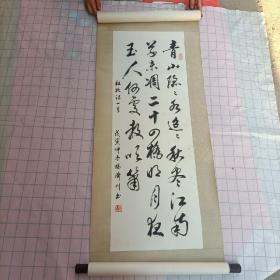 青山隱々水迢々秋盡江南
草未凋二十四橋明月夜
玉人何處教吹簫
杜牧詩一首
戊寅仲冬 濟川書